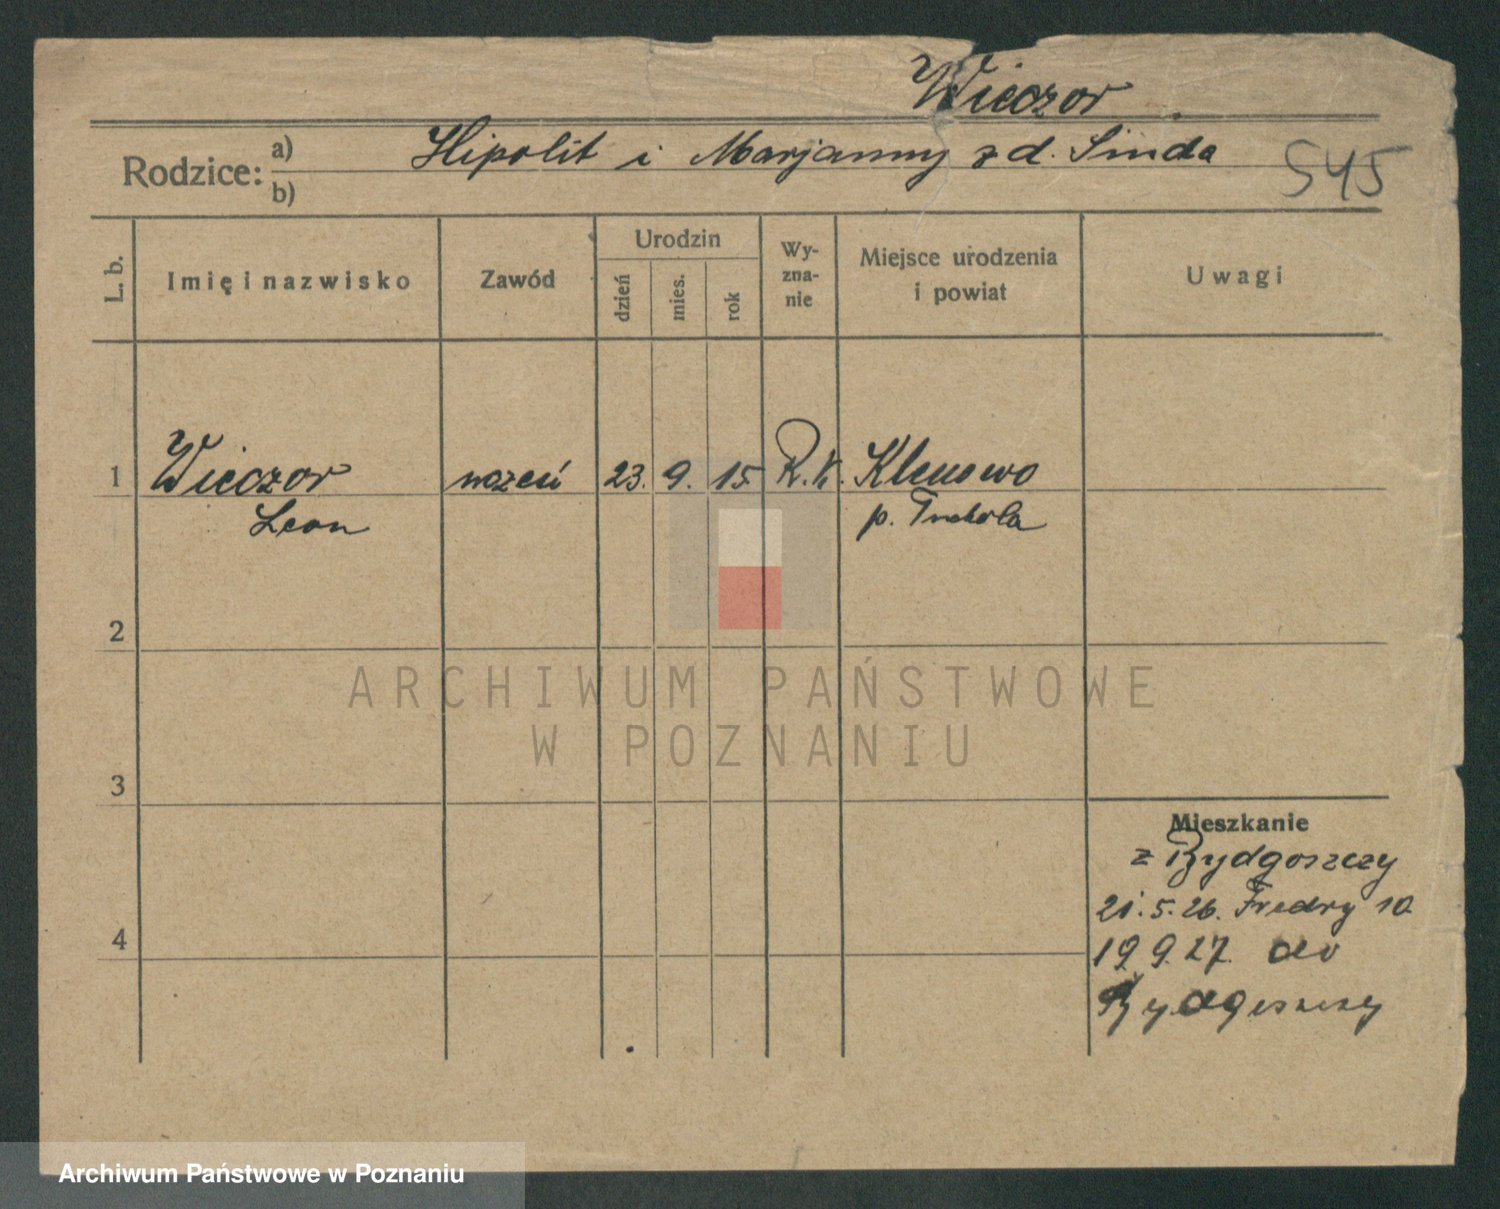 Wieczor
Rodzice: a) Hipolit i Marjanny z d. Sinda
b)
545
L. b. Imię i nazwisko Zawód Urodzin dzień mies. rok Wy-zna-nie Miejsce urodzenia i powiat Uwagi
1 Wieczor uczeń 23. 9. 15 R.K. Klonowo
Leon p. Tuchola
2
ARCHIWUM PAŃSTWOWE
W POZNANIU
3
Mieszkanie
z Bydgoszczy
21.5.26. Fredry 10
4 19 9.27. do
Bydgoszczy
Archiwum Państwowe w Poznaniu